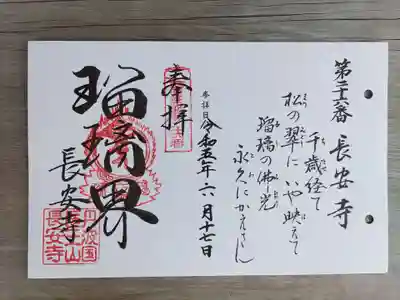 第二十六番 長安寺
千歳経て
松の翠に いや映えて
瑠璃の佛光
永久にかえさん
参拝日 令和五年六月十七日
奉拝
瑠璃界
長安寺
丹波国
長安寺